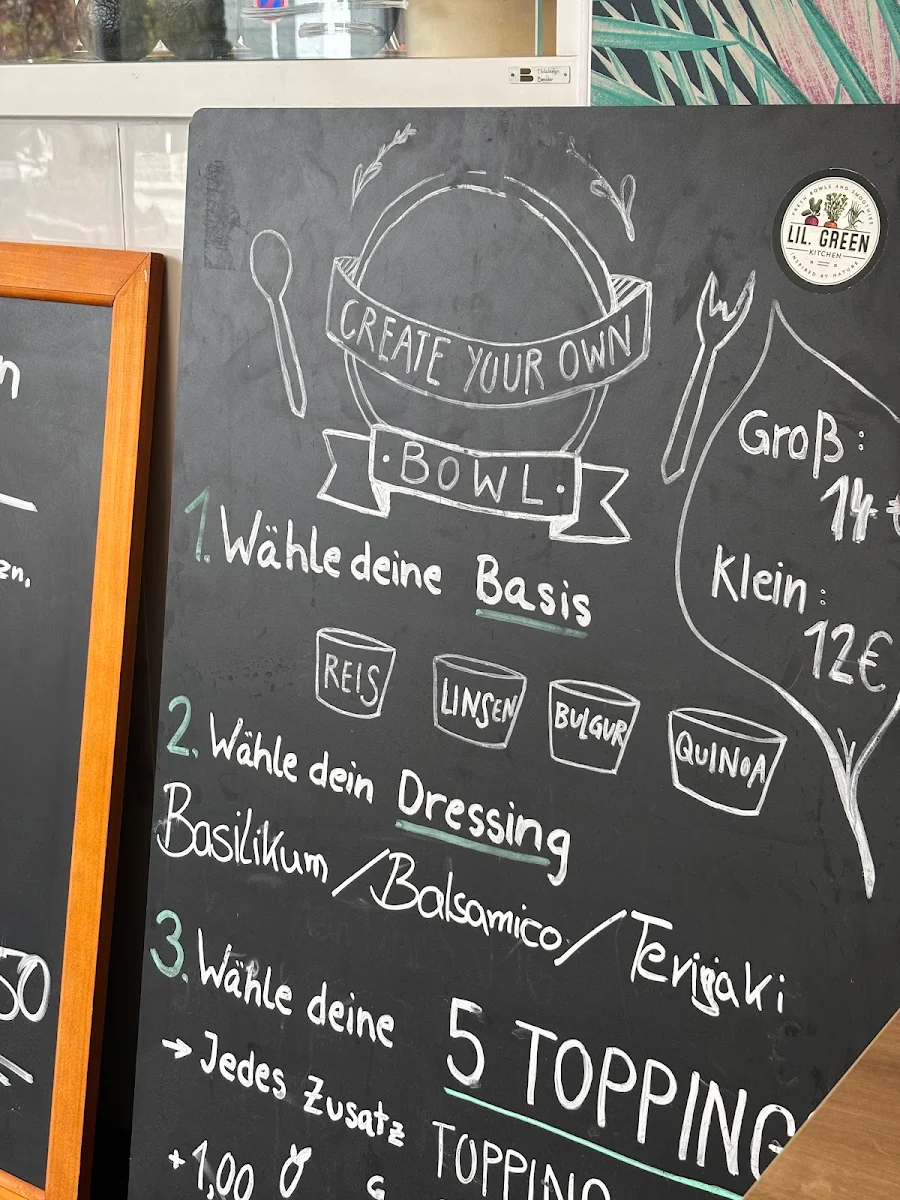 FRESH BOWLS AND SMOOTHIES
LIL. GREEN
KITCHEN
INSPIRED BY NATURE
CREATE YOUR OWN
BOWL
Groß:
14 €
Klein:
12€
1. Wähle deine Basis
REIS LINSEN BULGUR QUINOA
2. Wähle dein Dressing
Basilikum / Balsamico / Terijaki
3. Wähle deine 5 TOPPING
→ Jedes Zusatz TOPPING
+1,00
n
zn.
50